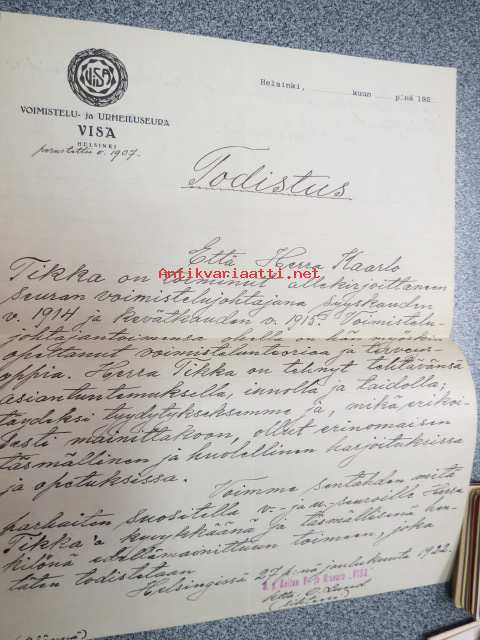 VISA
VOIMISTELU- ja URHEILUSEURA
VISA
HELSINKI
perustettu v. 1907.
Helsinki, kuun p:nä 192
Todistus
Että Herra Kaarlo
Tikka on toiminut allekirjoittaneen
Seuran voimistelujohtajana syyskauden
v. 1914 ja kevätkauden v. 1915. Voimistelu-
johtajantoimensa ohella on hän
opettanut voimistelunteoriaa ja terveys-
oppia. Herra Tikka on tehnyt tehtävänsä
asiantuntemuksella, innolla ja taidolla;
täydeksi tyydytykseksemme ja, mikä erikoi-
sesti mainittakoon, ollut erinomaisen
täsmällinen ja huolellinen harjoituksissa
ja opetuksissa. Voimme sentähden mitä
parhaiten suositella v.- ja u.-seuroille Herra
Tikka'a kyvykkäänä ja täsmällisenä hen-
kilönä edellämainittuun toimeen, joka
täten todistetaan
Helsingissä 27 p:nä joulukuuta 1922.
"VISA"
Antikvariaatti.net